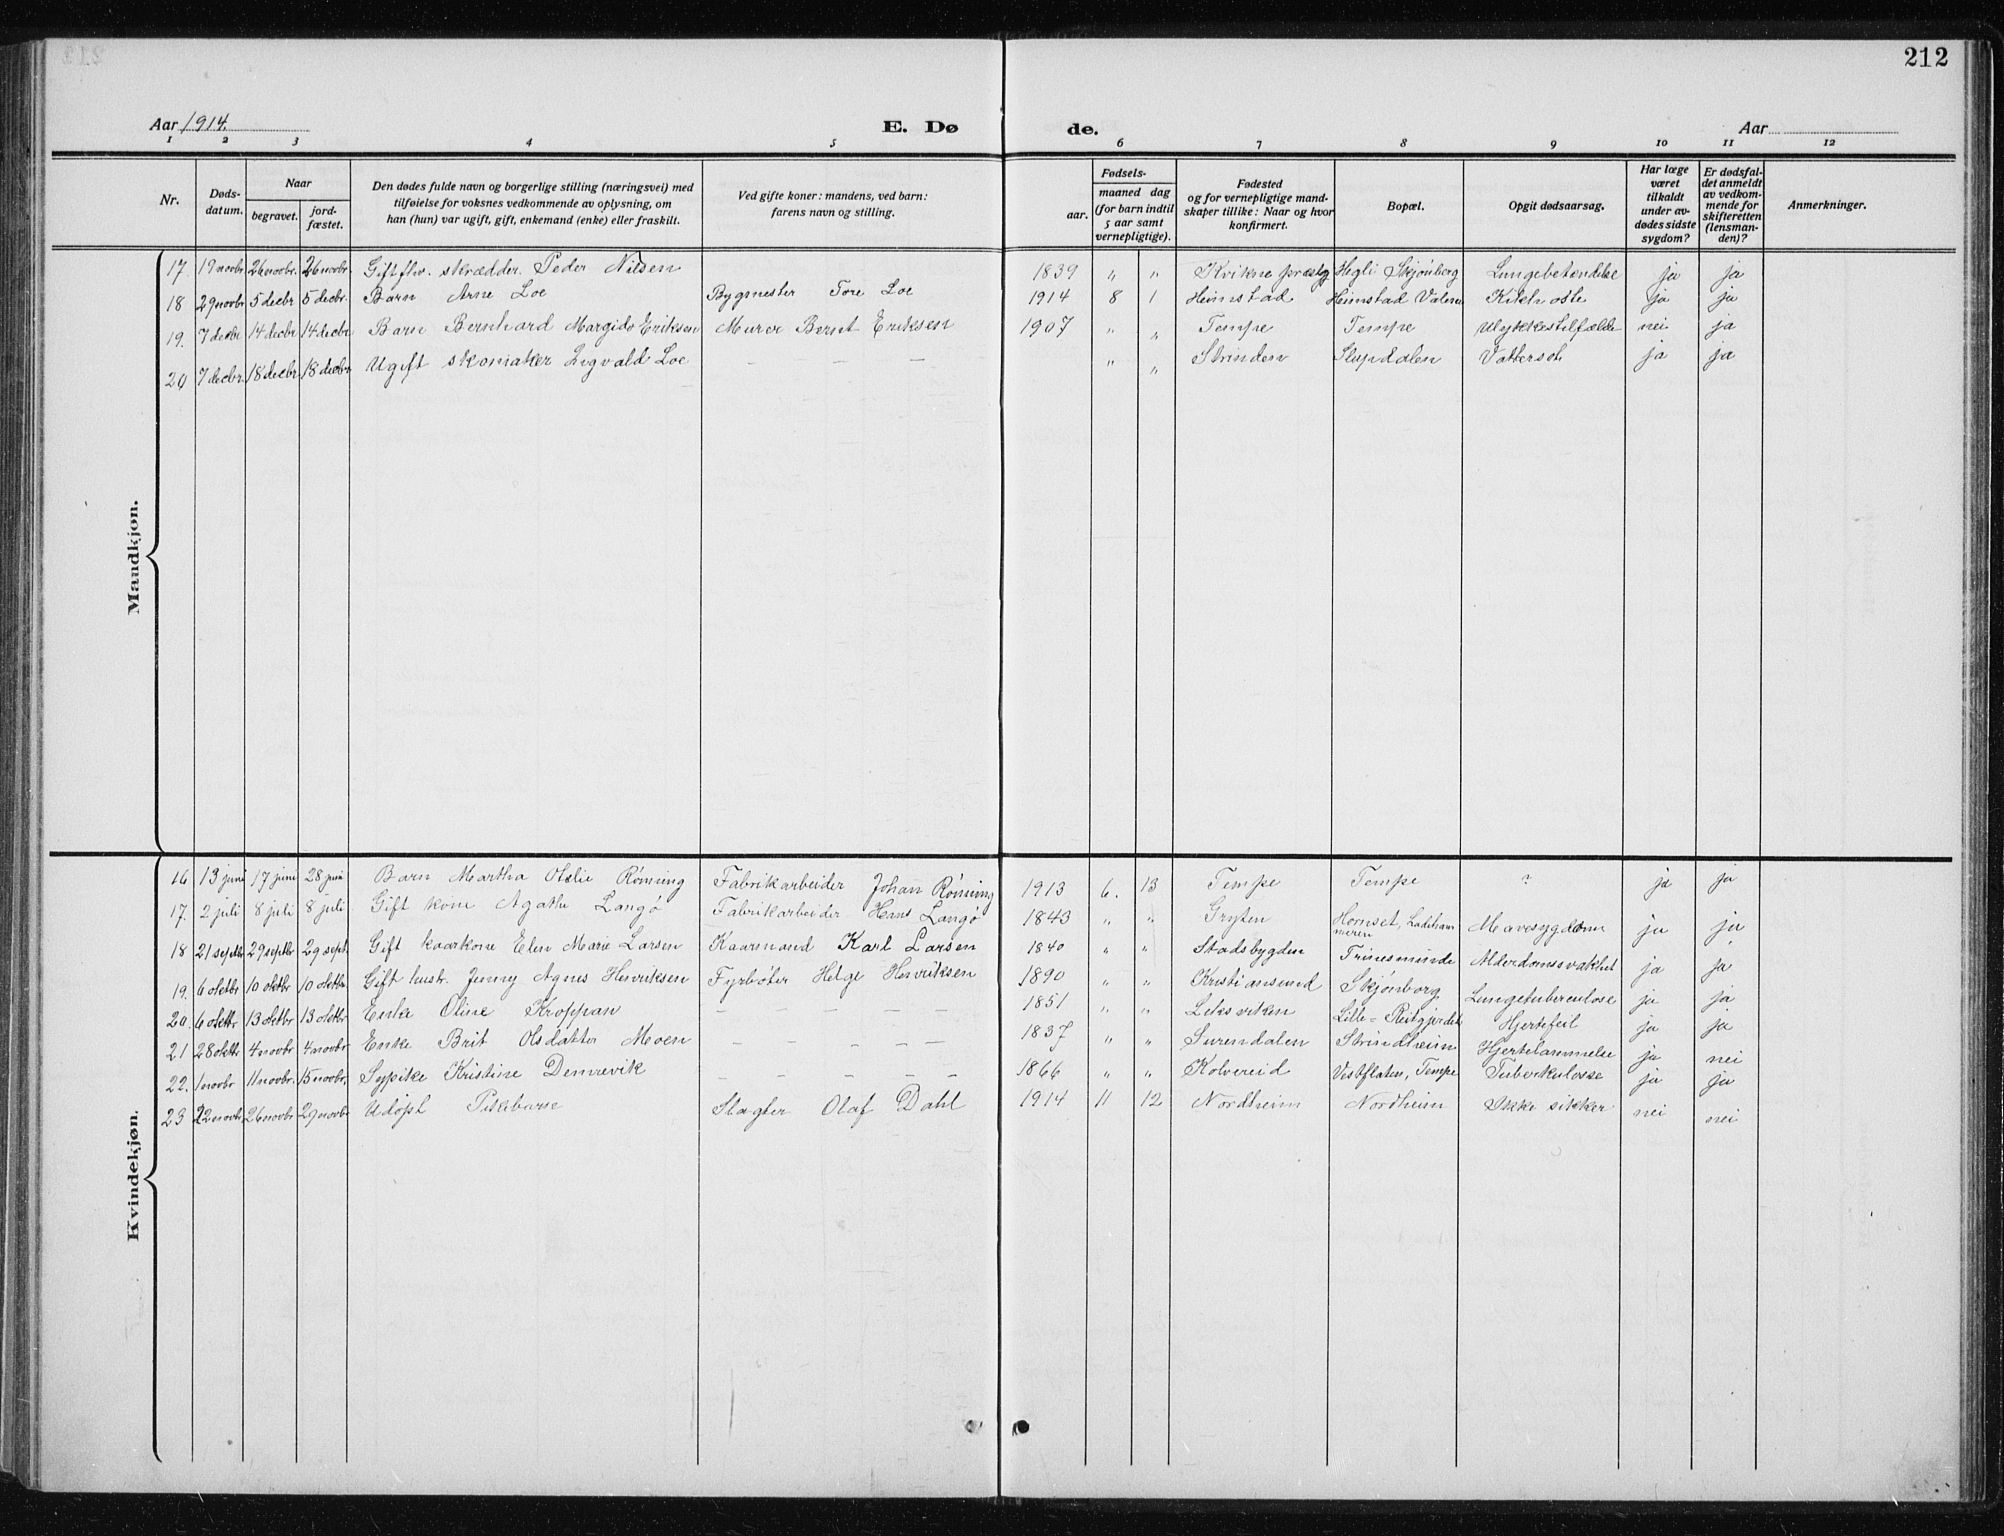 212
Aar 1914.
E. Dø
de.
Aar
1 2 3 4 5 6 7 8 9 10 11 12
Nr.
Døds-
datum.
Naar
begravet.
jord-
fæstet.
Den dødes fulde navn og borgerlige stilling (næringsvei) med
tilføielse for voksnes vedkommende av oplysning, om
han (hun) var ugift, gift, enkemand (enke) eller fraskilt.
Ved gifte koner: mandens, ved barn:
farens navn og stilling.
Fødsels-
aar.
maaned dag
(for barn indtil
5 aar samt
vernepligtige).
Fødested
og for vernepligtige mand-
skaper tillike: Naar og hvor
konfirmert.
Bopæl.
Opgit dødsaarsag.
Har læge
været
tilkaldt
under av-
dødes sidste
sygdom?
Er dødsfal-
det anmeldt
av vedkom-
mende for
skifteretten
(lensman-
den)?
Anmerkninger.
Mandkjøn.
17. 19 novbr. 26 novbr. 26 novbr. Gift fhv. skrædder Peder Nilsen 1839 " " Kvikne præstg Hegli Skjønberg Lungebetændelse ja ja
18 29 novbr 5 decbr 5 decbr. Barn Arne Loe Bygmester Tore Loe 1914 8 1 Heimstad Heimstad Valene Kikhoste ja ja
19. 7 decbr 14 decbr 14 decbr Barn Bernhard Margido Eriksen Murer Bernt Eriksen 1907 " " Tempe Tempe Ulykkestilfælde nei ja
20 7 decbr. 18 decbr 18 decbr Ugift skomaker Ingvald Loe — — — " " Strinden Slupdalen Vattersot ja ja
Kvindekjøn.
16 13 juni 17 juni 28 juni Barn Martha Oldie Rønning Fabrikarbeider Johan Rønning 1913 6. 13 Tempe Tempe ? ja ja
17. 2 juli 8 juli 8 juli Gift kone Agathe Langø Fabrikarbeider Hans Langø 1843 " " Gryten Hornset, Ladeham meren Mavesygdom ja ja
18 21 septbr 29 septbr 29 sept. Gift kaarkone Elen Marie Larsen Kaarmand Karl Larsen 1840 " " Stadsbygden Trinesminde Alderdomssvakhet ja ja
19. 6 oktbr 10 oktbr 10 oktbr. Gift hustr. Jenny Agnes Henriksen Fyrbøter Helge Henriksen 1890 " " Kristiansund Skjønborg Lungetuberculose ja ja
20. 6 oktbr 13 oktbr 13 oktbr Enke Oline Kroppan — — — — — 1851 " " Leksviken Lille-Reitgjerdet Hjertefeil ja ja
21 28 oktbr 4 novbr 4 novbr Enke Brit Olsdatter Moen — — — — — 1837 " " Surendalen Strindheim Hjertelammelse ja nei
22. 1 novbr 11 novbr. 15 novbr. Sypike Kristine Demrevik — — — — 1866 " " Kolvereid Vestflaten, Tempe Tuberkulosse ja ja
23 22 novbr. 26 novbr 29 novbr Udøpt Pikebarn Slagter Olaf Dahl 1914 11 12 Nordheim Nordheim Ikke sikker nei nei